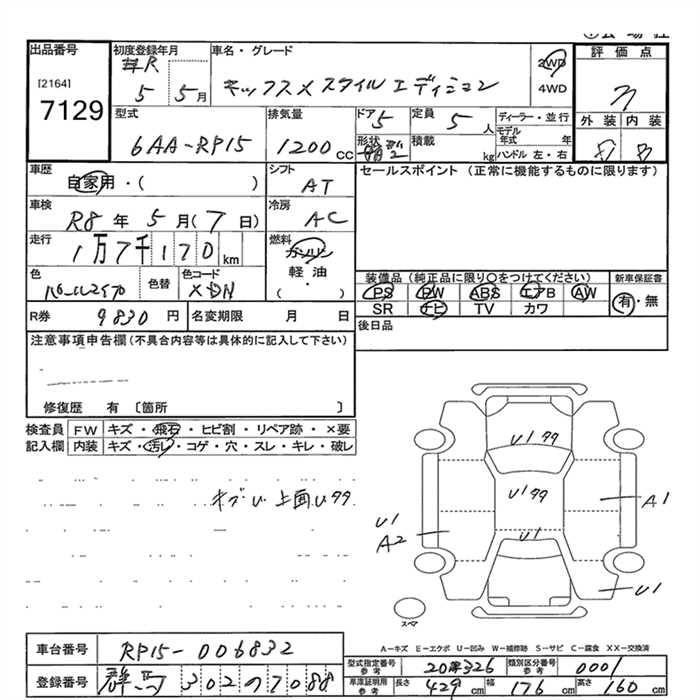 出品番号
[2164]
7129
初度登録年月
#R
5 5月
車名・グレード
キックスX スタイルエディション
2WD
4WD
評価点
外装 内装
型式
6AA-RP15
排気量
1200 CC
ドア 5
形状
定員 5 人
積載 kg
ディーラー・並行
モデル年式 年
ハンドル 左・右
車歴
自家用・( )
シフト
AT
セールスポイント (正常に機能するものに限ります)
車検
R8 年 5 月(7 日)
冷房
AC
走行
1万7千170 km
燃料
ガソリン
軽油
・( )
色
色替
色コード
XDN
装備品(純正品に限り〇をつけてください)
PS PW ABS エアB AW
SR ナビ TV カワ
新車保証書
有・無
R券 9830 円
名変期限 月 日
後日品
注意事項申告欄(不具合内容等は具体的に記入して下さい)
修復歴 有 〔箇所 〕
検査員記入欄
FW キズ・飛石・ヒビ割・リペア跡・×要
内装 キズ・汚レ・コゲ・穴・スレ・キレ・破レ
キズU 上面Uタタ
U1タタ
U1タタ
A1
U1
A2
U1
U1
スマ
A-キズ E-エクボ U-凹み W-補修跡 S-サビ C-腐食 XX-交換済
車台番号 RP15-006832
登録番号 群馬 302 ワ 7088
型式指定番号 参考 20326
類別区分番号 参考 0001
車庫証明用 参考 長さ 429 cm 幅 176 cm 高さ 160 cm